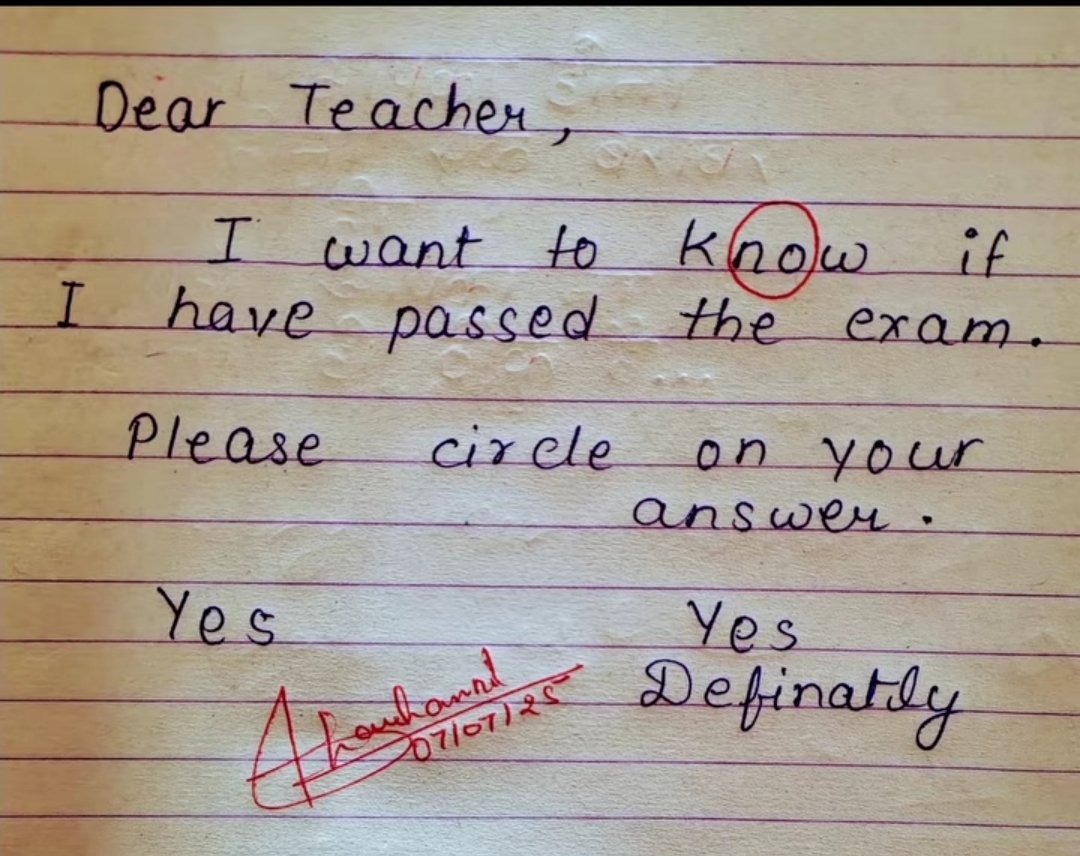 Dear Teacher,
I want to know if
I have passed the exam.
Please circle on your
answer.
Yes Yes
Definatly
07/07/25